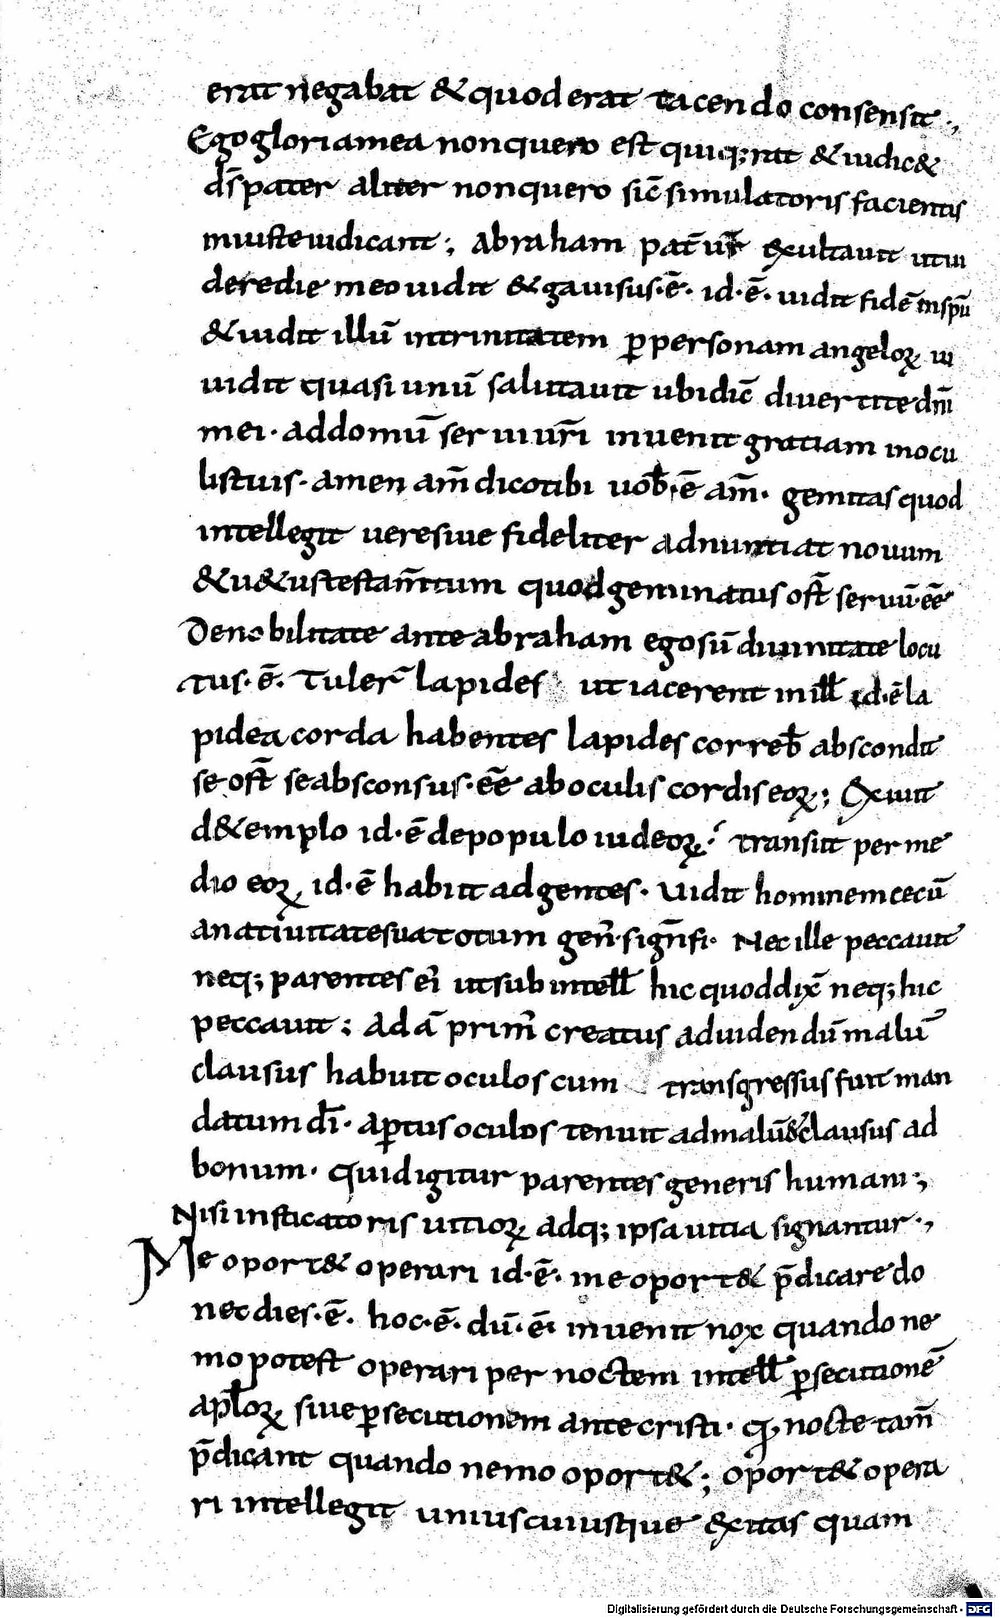 erat negabat & quod erat tacendo consensit.,
Ego gloriam mea non quero est qui q;rat & iudic&
dš pater aliter non quero sic̄ simulatoris facientis
iniuste iudicant; Abraham pat̄ ur̄ exultauit ut ui
deredie meo uidit & gauisus·ē· id·ē· uidit fidē in spū
& uidit illū in trinitatem ꝑ personam angeloꝝ iii
uidit quasi unū salutauit ubi dic̄ diuertite dnī
mei· ad domū serui ur̄i inuenit gratiam in ocu
lis tuis· amen am̄ dico tibi uob̄·ē am̄· geminas quod
intellegit uere siue fideliter adnuntiat nouum
& u&us testam̄tum quod geminatus ost̄ seruū·eē
De nobilitate ante abraham ego sū diuinitate locu
tus·ē· Tuler̄ lapides ut iacerent in ill̄ id·ē la
pidea corda habentes lapides correb̄ abscondit
se ost̄ se absconsus·eē ab oculis cordis eoꝝ; Exiuit
d& emplo id·ē de populo iudeoꝝ· transiit per me
dio eoꝝ id·ē habiit ad gentes· uidit hominem cecū
a natiuitate sua totum gen̄· sign̄fi· Nec ille peccauit
neq; parentes ei ut sub intell̄ hic quod dix̄ neq; hic
peccauit; Adā prim̄ creatus ad uidendū malū
clausus habuit oculos cum transgressus fuit man
datum dī· aꝑtus oculos tenuit ad malū & clausus ad
bonum· quid igitur parentes generis humani;
Nisi insticatoris uitioꝝ adq; ipsa uitia signantur·,
Me oport& operari id·ē· me oport& p̄dicare do
nec dies·ē· hoc·ē· dū·ē· inuenit nox quando ne
mo potest operari per noctem intell̄ ꝑsecutionē
apl̄oꝝ siue ꝑsecutionem antecristi· q, nocte tam̄
p̄dicant quando nemo oport&; oport& opera
ri intellegit uniuscuiusque &xitas quam
Digitalisierung gefördert durch die Deutsche Forschungsgemeinschaft - DFG